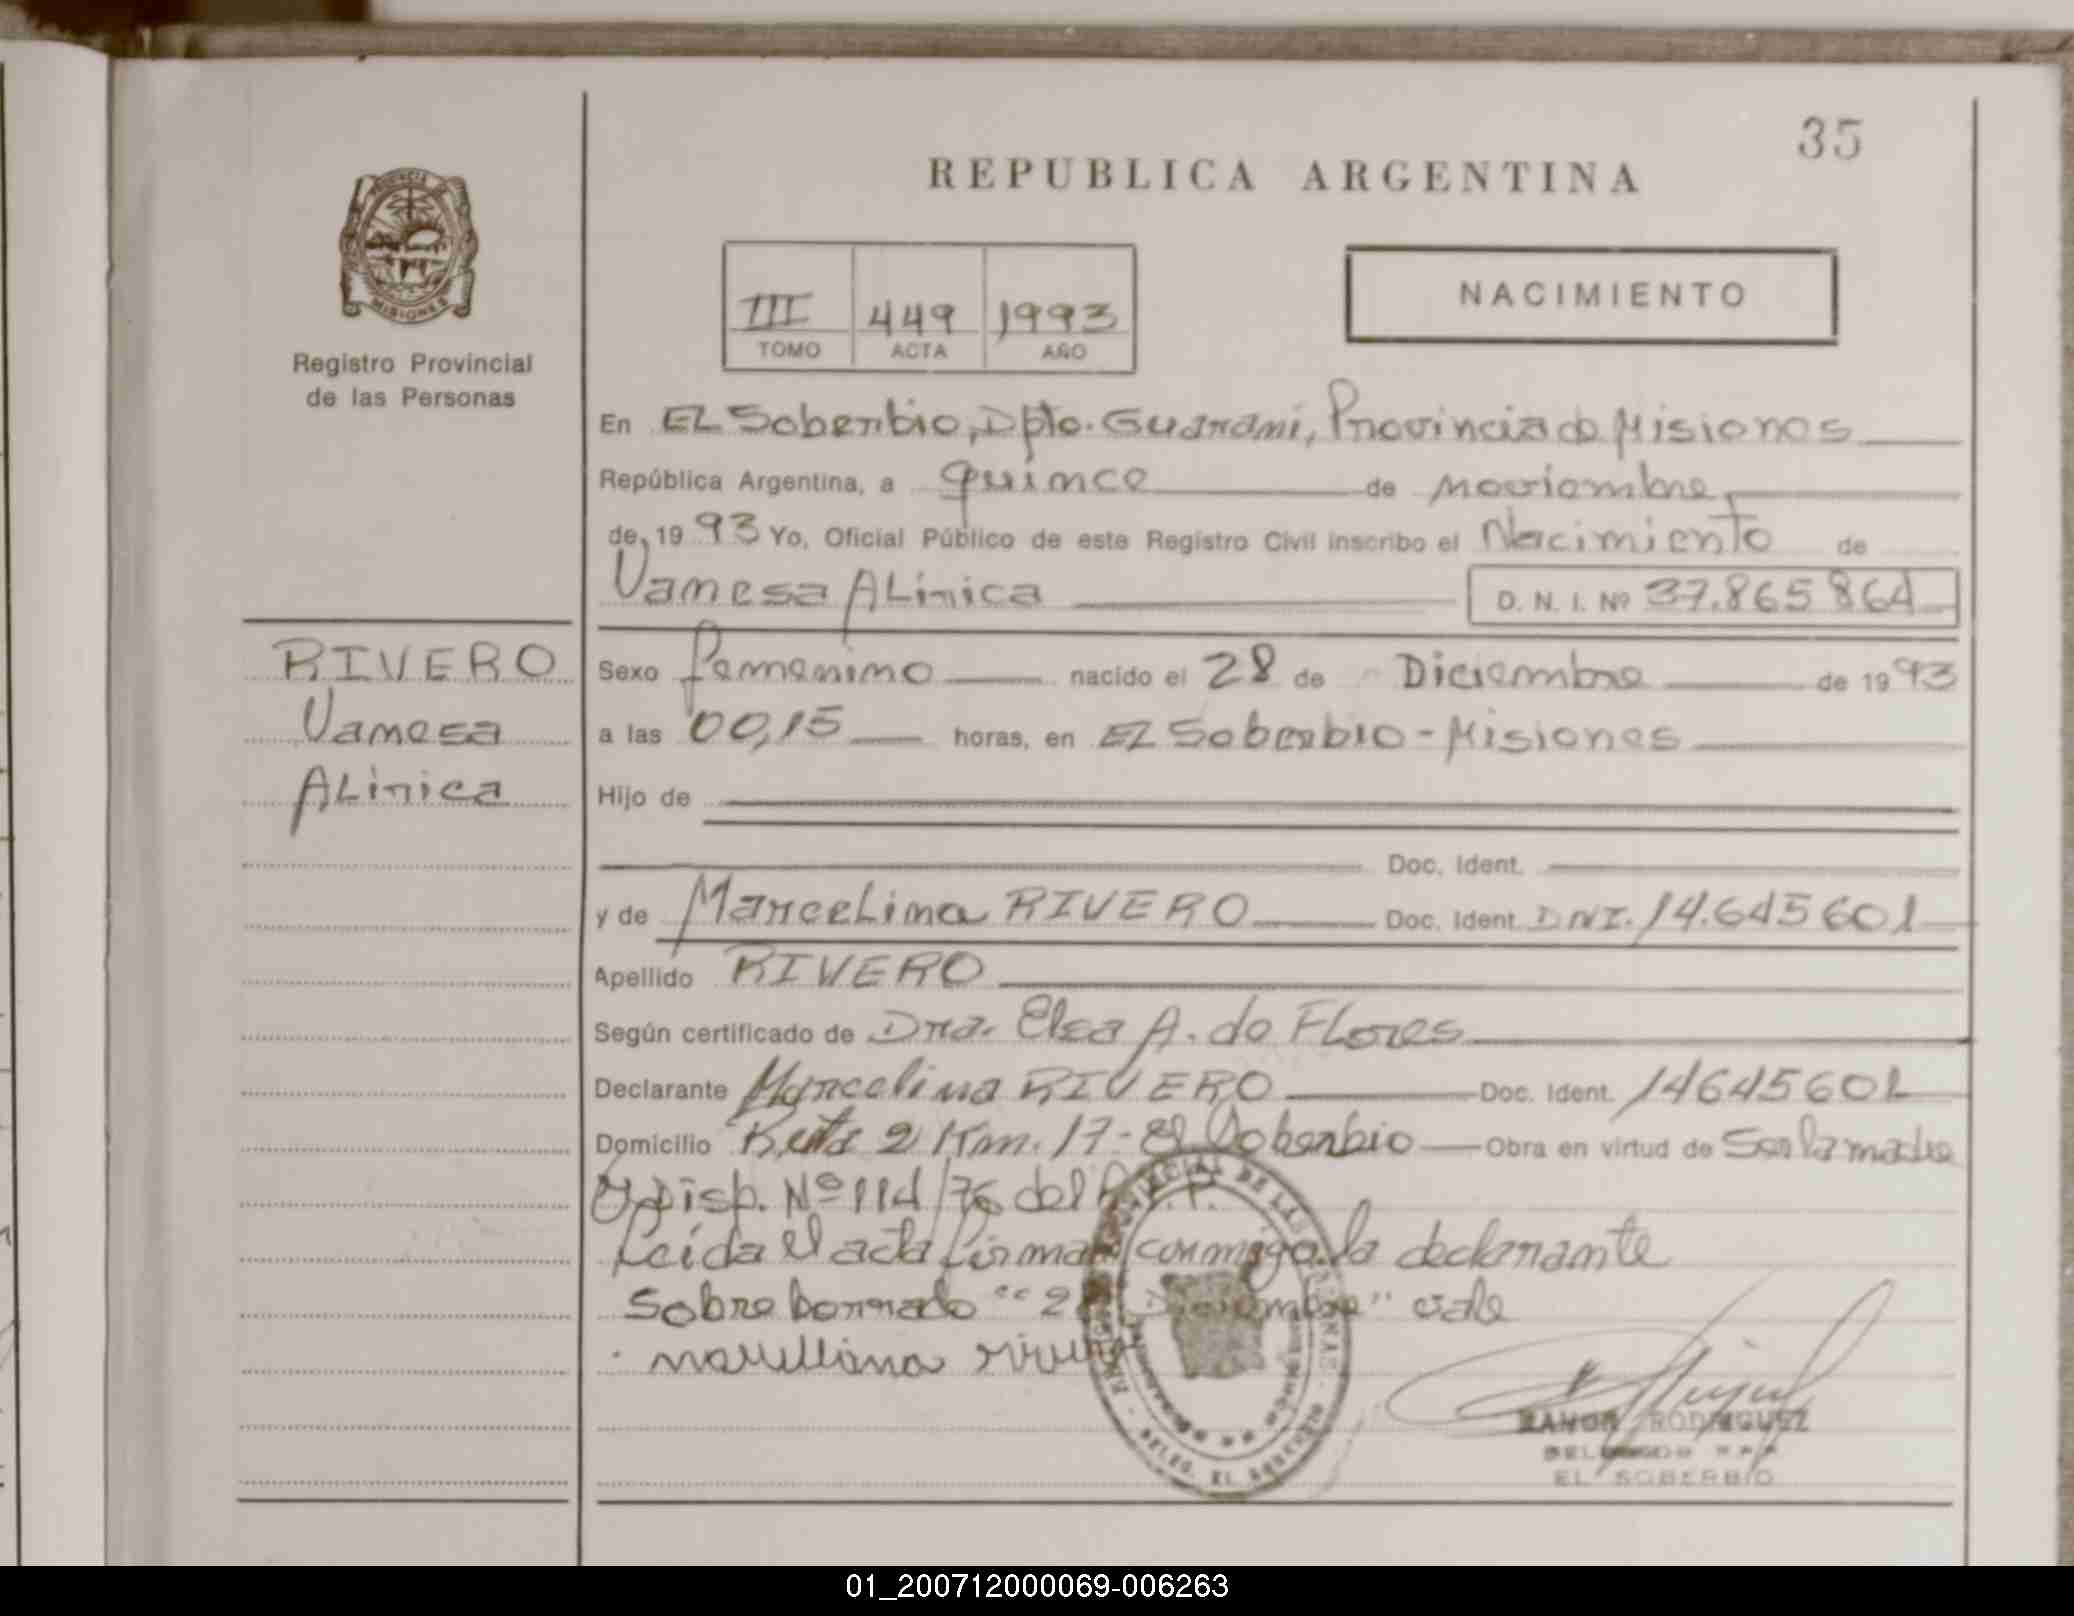 35
REPUBLICA ARGENTINA
PROVINCIA DE MISIONES
Registro Provincial
de las Personas
III 449 1993
TOMO ACTA AÑO
NACIMIENTO
En EL Soberbio, Dpto. Guarani, Provincia de Misiones
República Argentina, a quince de noviembre
de 1993 Yo, Oficial Público de este Registro Civil inscribo el Nacimiento de
Vanesa ALinica D. N. I. Nº 37.865864
RIVERO
Vanesa
ALinica
Sexo femenino nacido el 28 de Diciembre de 1993
a las 00,15 horas, en EL Soberbio - Misiones
Hijo de
Doc. Ident.
y de MarceLina RIVERO Doc. Ident. DNI. 14.645601
Apellido RIVERO
Según certificado de Dra. Elsa A. de FLores
Declarante Marcelina RIVERO Doc. Ident. 14645601
Domicilio Ruta 2 Km. 17 - El Soberbio Obra en virtud de Ser la madre
y Disp. Nº 114/76 del
Leída el acta firma conmigo la declarante
Sobre borrado "28 Diciembre" vale
RAMON RODRIGUEZ
DELEGADO R.P.P.
EL SOBERBIO
DELEG. EL SOBERBIO
01_200712000069-006263